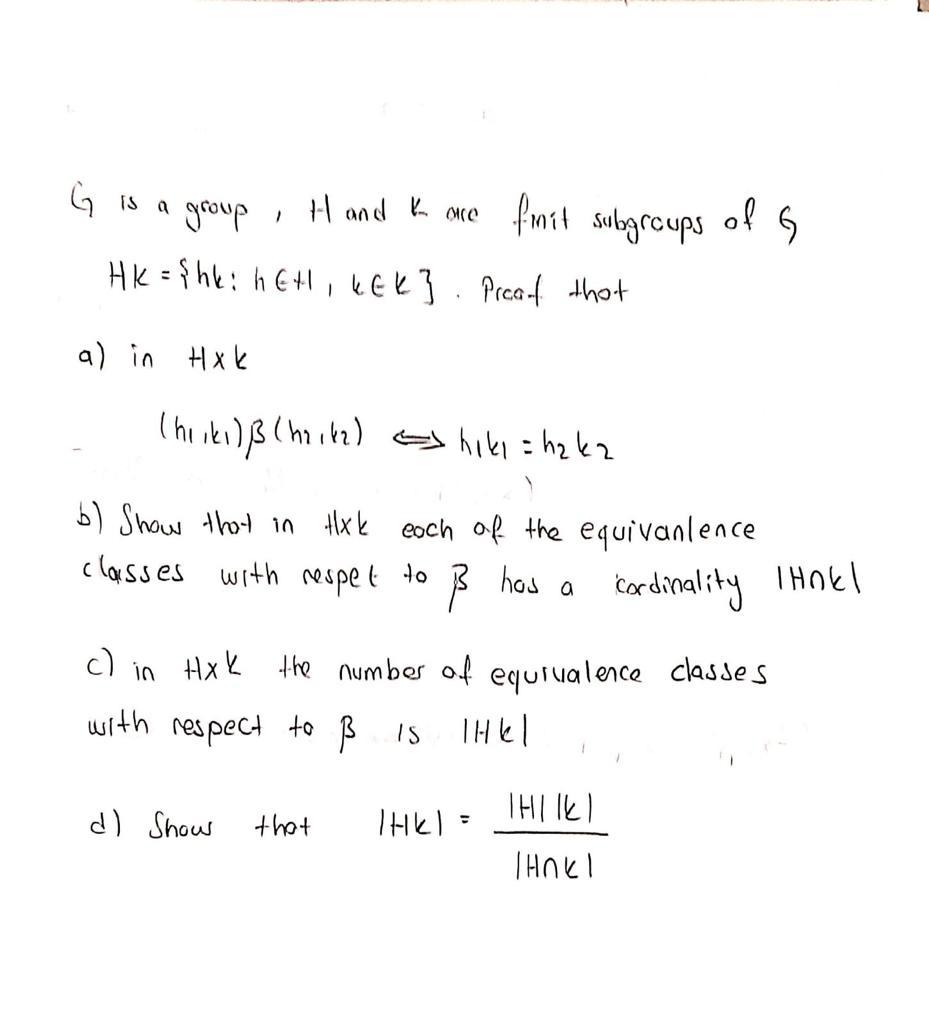 G is a group, H and K are finit subgroups of G
HK = {hk : h ∈ H, k ∈ K}. Proof that
a) in H x K
(h1, k1) β (h2, k2) ⟺ h1k1 = h2k2
b) Show that in HxK each of the equivanlence
classes with respet to β has a cordinality |H∩K|
c) in HxK the number of equivalence classes
with respect to β is |HK|
d) Show that |HK| = |H| |K|
|H∩K|